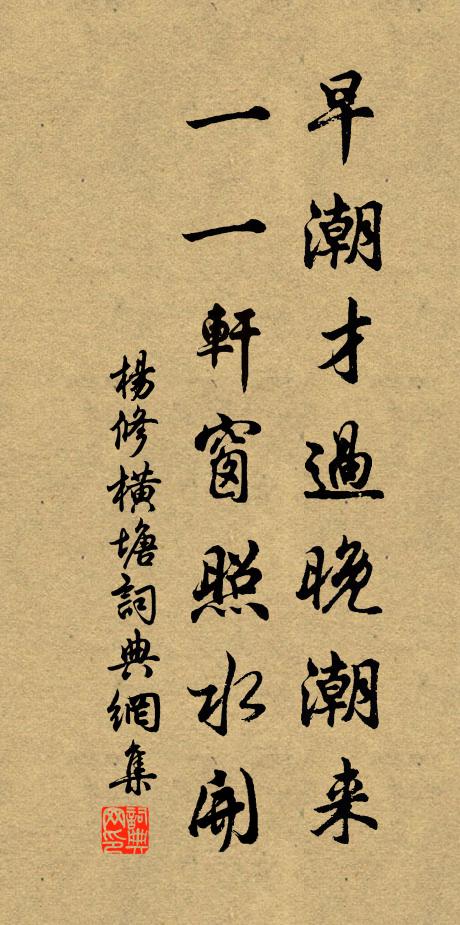 早潮才過晚潮来
一一軒窗照水開
楊修橫塘詞典網集
詞典网印